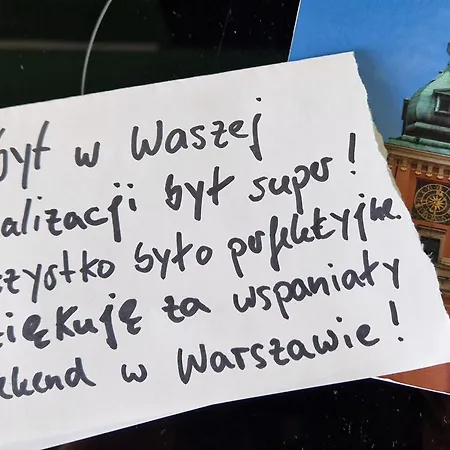 był w Waszej
alizacji był super!
zystko było perfekcyjne.
ziękuję za wspaniały
ekend w Warszawie!